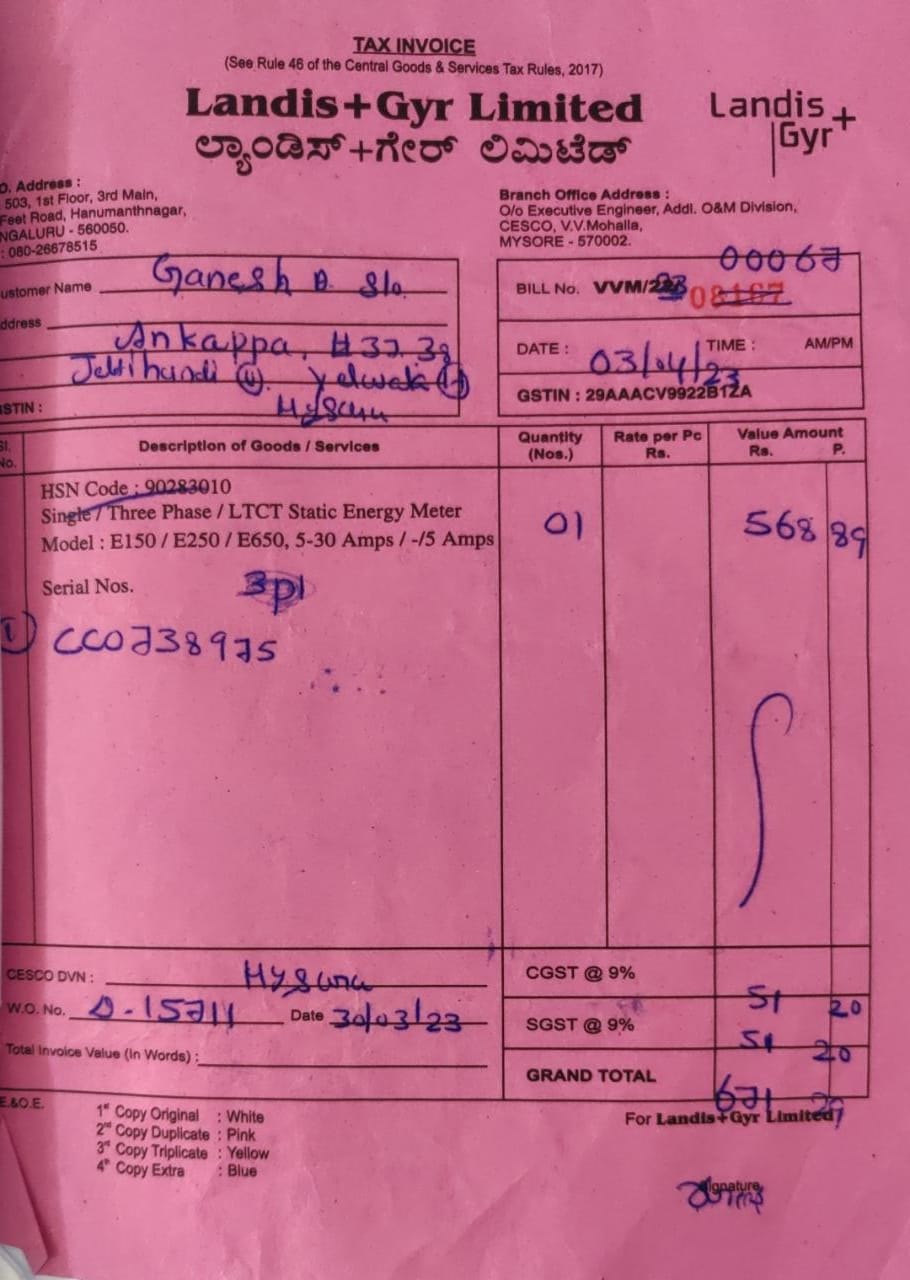 TAX INVOICE
(See Rule 46 of the Central Goods & Services Tax Rules, 2017)
Landis+Gyr Limited
ಲ್ಯಾಂಡಿಸ್+ಗೇರ್ ಲಿಮಿಟೆಡ್
Landis+
Gyr
O. Address :
503, 1st Floor, 3rd Main,
Feet Road, Hanumanthnagar,
NGALURU - 560050.
: 080-26678515
Branch Office Address :
O/o Executive Engineer, Addl. O&M Division,
CESCO, V.V.Mohalla,
MYSORE - 570002.
ustomer Name Ganesh B. S/o.
ddress
Ankappa, #37.38
Yelwala (H)
Mysuru
STIN :
00067
BILL No. VVM/ 08167
DATE : 03/04/23 TIME : AM/PM
GSTIN : 29AAACV9922B1ZA
Sl. No. Description of Goods / Services Quantity (Nos.) Rate per Pc Rs. Value Amount Rs. P.
HSN Code : 90283010
Single / Three Phase / LTCT Static Energy Meter
Model : E150 / E250 / E650, 5-30 Amps / -/5 Amps 01 568 89
Serial Nos. 3pl
1) CC0738975
CESCO DVN : Mysuru
W.O. No. D-15711 Date 30/03/23
Total Invoice Value (In Words) :
CGST @ 9% 51 20
SGST @ 9% 51 20
GRAND TOTAL 671 29
E.&O.E.
1st Copy Original : White
2nd Copy Duplicate : Pink
3rd Copy Triplicate : Yellow
4th Copy Extra : Blue
For Landis+Gyr Limited
Signature